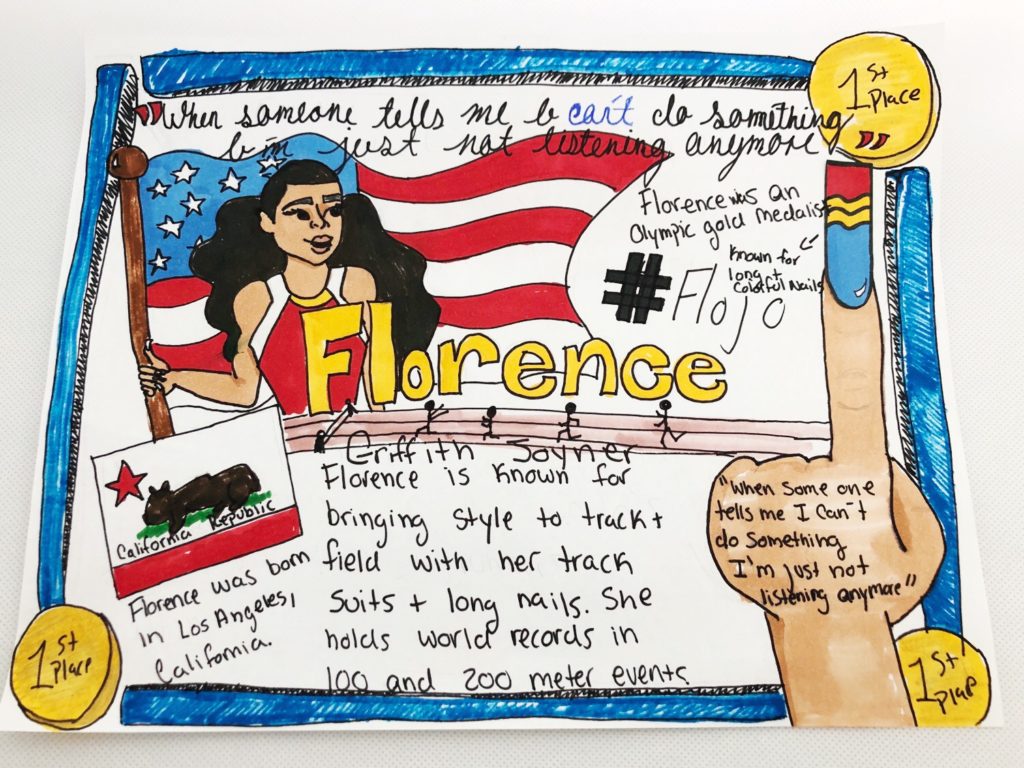 "When someone tells me I can't do something
I'm just not listening anymore"
1st
Place
Florence was an
Olympic gold medalist
Known for
long +
Colorful Nails
#Flojo
Florence
Griffith Joyner
Florence is known for
bringing style to track +
field with her track
suits + long nails. She
holds world records in
100 and 200 meter events
California Republic
Florence was born
in Los Angeles,
California.
"When some one
tells me I can't
do something
I'm just not
listening anymore"
1st
Place
1st
Place